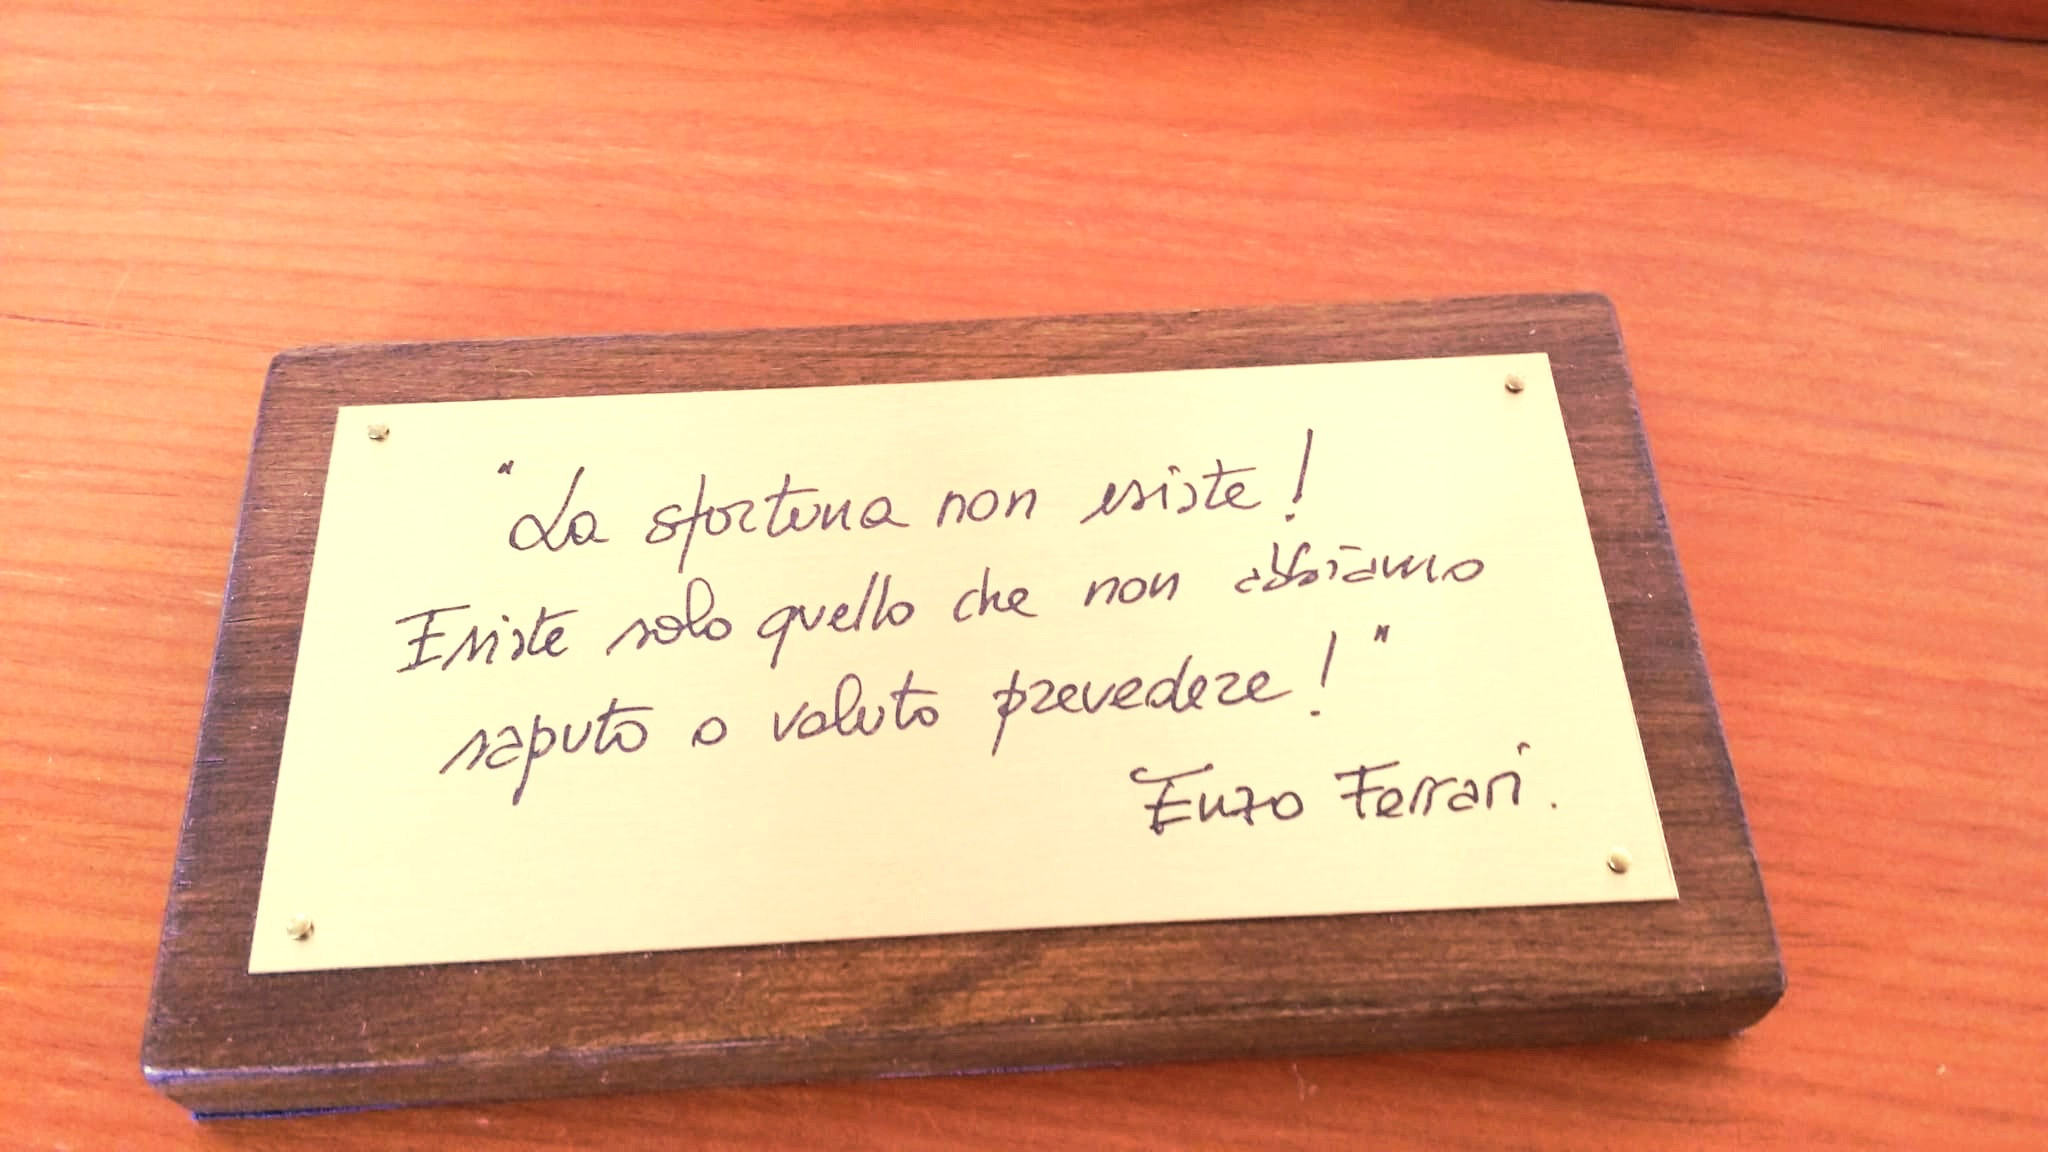 "La sfortuna non esiste!
Esiste solo quello che non abbiamo
saputo o voluto prevedere!"
Enzo Ferrari.